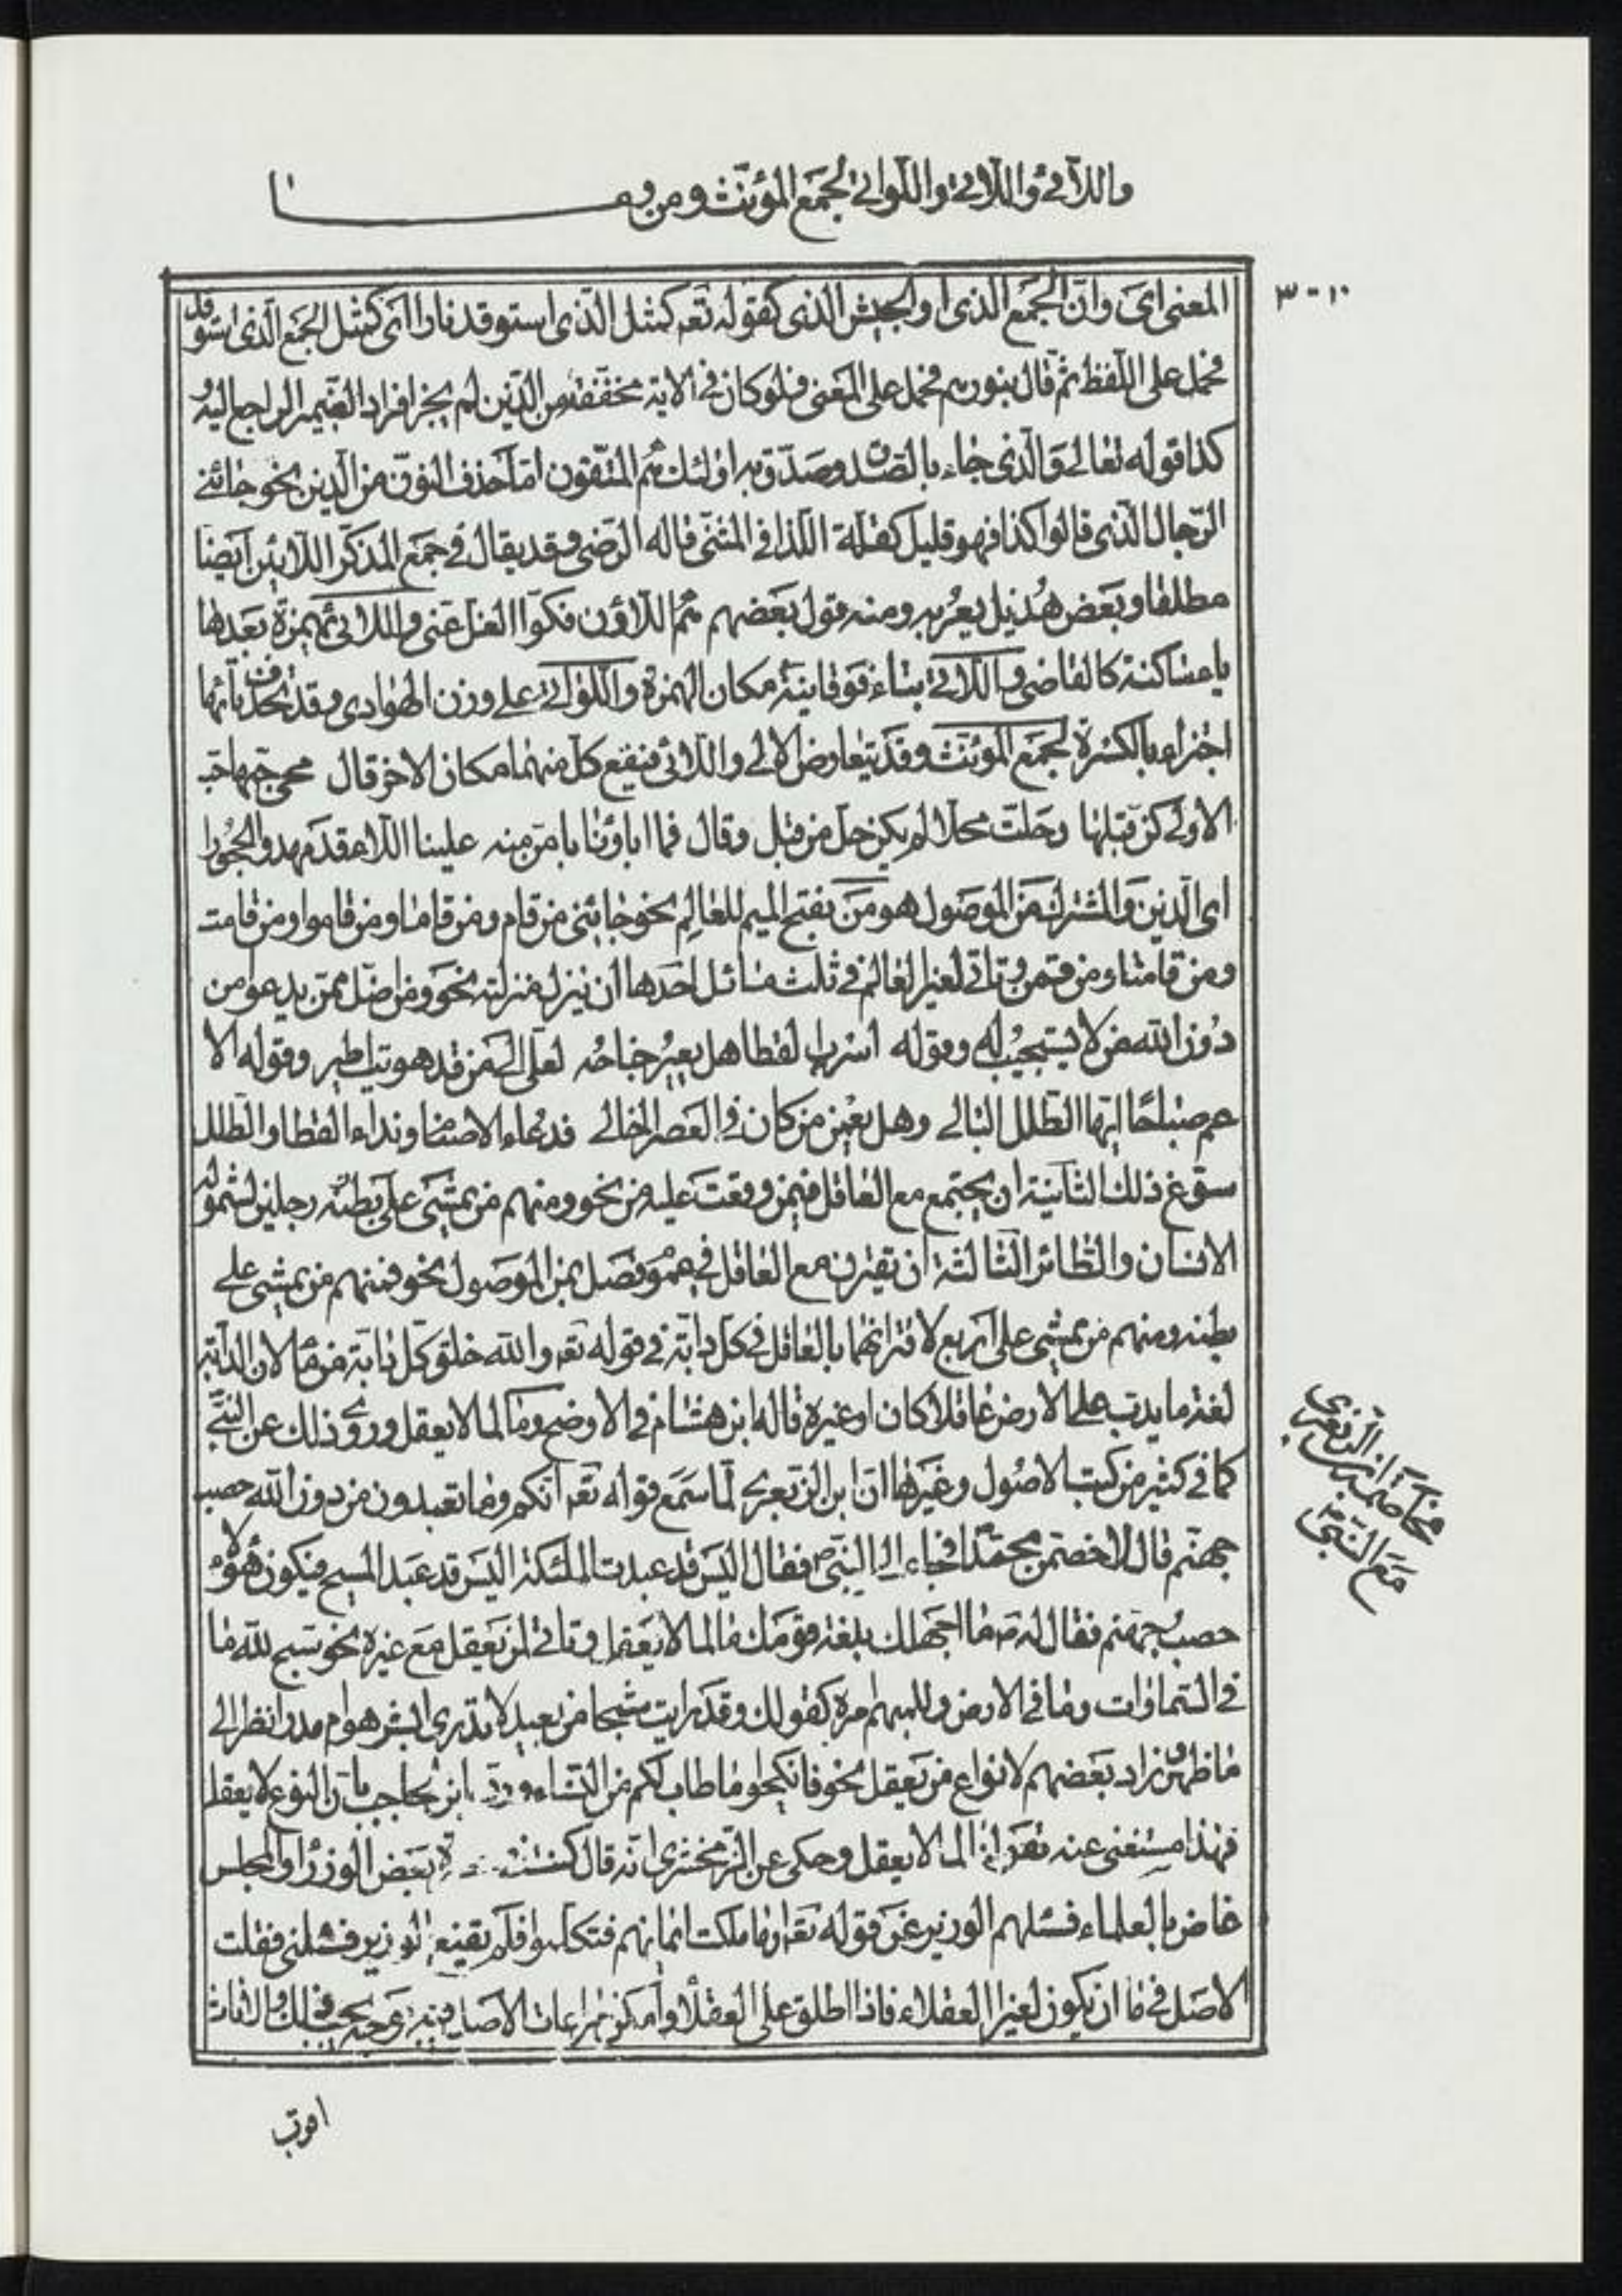 واللآئی واللآتی واللواتی لجمع المؤنث ومن وما
٣٠١٠
المعنى اى وان الجمع الذى او الجيش الذى كقوله تعه كمثل الذى استوقد نارا اى كمثل الجمع الذى استوقد
فحمل على اللفظ ثم قال بنورهم فحمل على المعنى فلو كان فى الاية مخففة من الذين لم يجز افراد الضمير الراجع اليه
كذا قوله تعالى والذى جاء بالصدق وصدق به اولئك هم المتقون اما حذف النون من الذين نحو جائنى
الرجال الذى قالوا كذا فهو قليل كقلة اللذا فى المثنى قاله الرضى وقد يقال فى جمع المذكر اللائين ايضا
مطلقا وبعض هذيل يعربه ومنه قول بعضهم هم اللاؤن فكوا الغل عنى واللائى بهمزة بعدها
ياء ساكنة كالقاضى واللاتى بتاء فوقانية مكان الهمزة واللواتى على وزن الهوادى وقد يحذف يائها
اجتزاء بالكسرة لجمع المؤنث وقد يتعارض الالى واللائى فيقع كل منهما مكان الاخر قال محى حبها حب
الاولى كن قبلها وحلت محلا لم يكن حل من قبل وقال فما اباؤنا بامن منه علينا اللاء قد مهدوا الحجورا
اى الذين والمشترك من الموصول هو من بفتح الميم للعالم نحو جائنى من قام ومن قاما ومن قاموا ومن قامت
ومن قامتا ومن قمن وتاتى لغير العالم فى ثلث مسائل احدها ان ينزل منزلته نحو ومن اضل ممن يدعو من
دون الله من لا يستجيب له وقوله اسرب القطا هل يعير جناحه لعلى الى من قد هويت اطير وقوله الا
عم صباحا ايها الطلل البالى وهل يعمن من كان فى العصر الخالى فدعاء الاصنام ونداء القطا والطلل
سوغ ذلك الثانية ان يجتمع مع العاقل فيمن وقعت عليه من نحو ومنهم من يمشى على بطنه رجلين لشموله
الانسان والطائر الثالثة ان تقترن مع العاقل فى عموم فصل بمن الموصول نحو فمنهم من يمشى على
بطنه ومنهم من يمشى على اربع لاقترانهما بالعاقل فى كل دابة فى قوله تعه والله خلق كل دابة من ماء لان الدابة
لغة ما يدب على الارض عاقلا كان او غيره قاله ابن هشام فى الاوضح وما لما لا يعقل وروى ذلك عن النبى
كما فى كثير من كتب الاصول وغيرها ان ابن الزبعرى لما سمع قوله تعه انكم وما تعبدون من دون الله حصب
جهنم قال لاخصمن محمدا فجاء الى النبى ص فقال اليس قد عبدت الملئكة اليس قد عبد المسيح فيكون هؤلاء
حصب جهنم فقال له ص ما اجهلك بلغة قومك ما لما لا يعقل وتاتى لمن يعقل مع غيره نحو سبح لله ما
فى السماوات وما فى الارض وللمبهم امره كقولك وقد رايت شبحا من بعيد لا تدرى ابشر هو ام مدر انظر الى
ما ظهر وزاد بعضهم لانواع من يعقل نحو فانكحوا ما طاب لكم من النساء ورد ابن الحاجب بان النوع لا يعقل
فهذا مستغنى عنه لما لا يعقل وحكى عن الزمخشرى انه قال كنت بعض الوزراء والمجلس
غاض بالعلماء فسئلهم الوزير عن قوله تعه او ما ملكت ايمانهم فتكلموا فلم يقنع الوزير فسئلنى فقلت
الاصل فى ما ان يكون لغير العقلاء فاذا اطلق على العقلاء وامكن مراعات الاصل فيه
مخاصمة ابن الزبعرى
مع النبى ص
اقرب